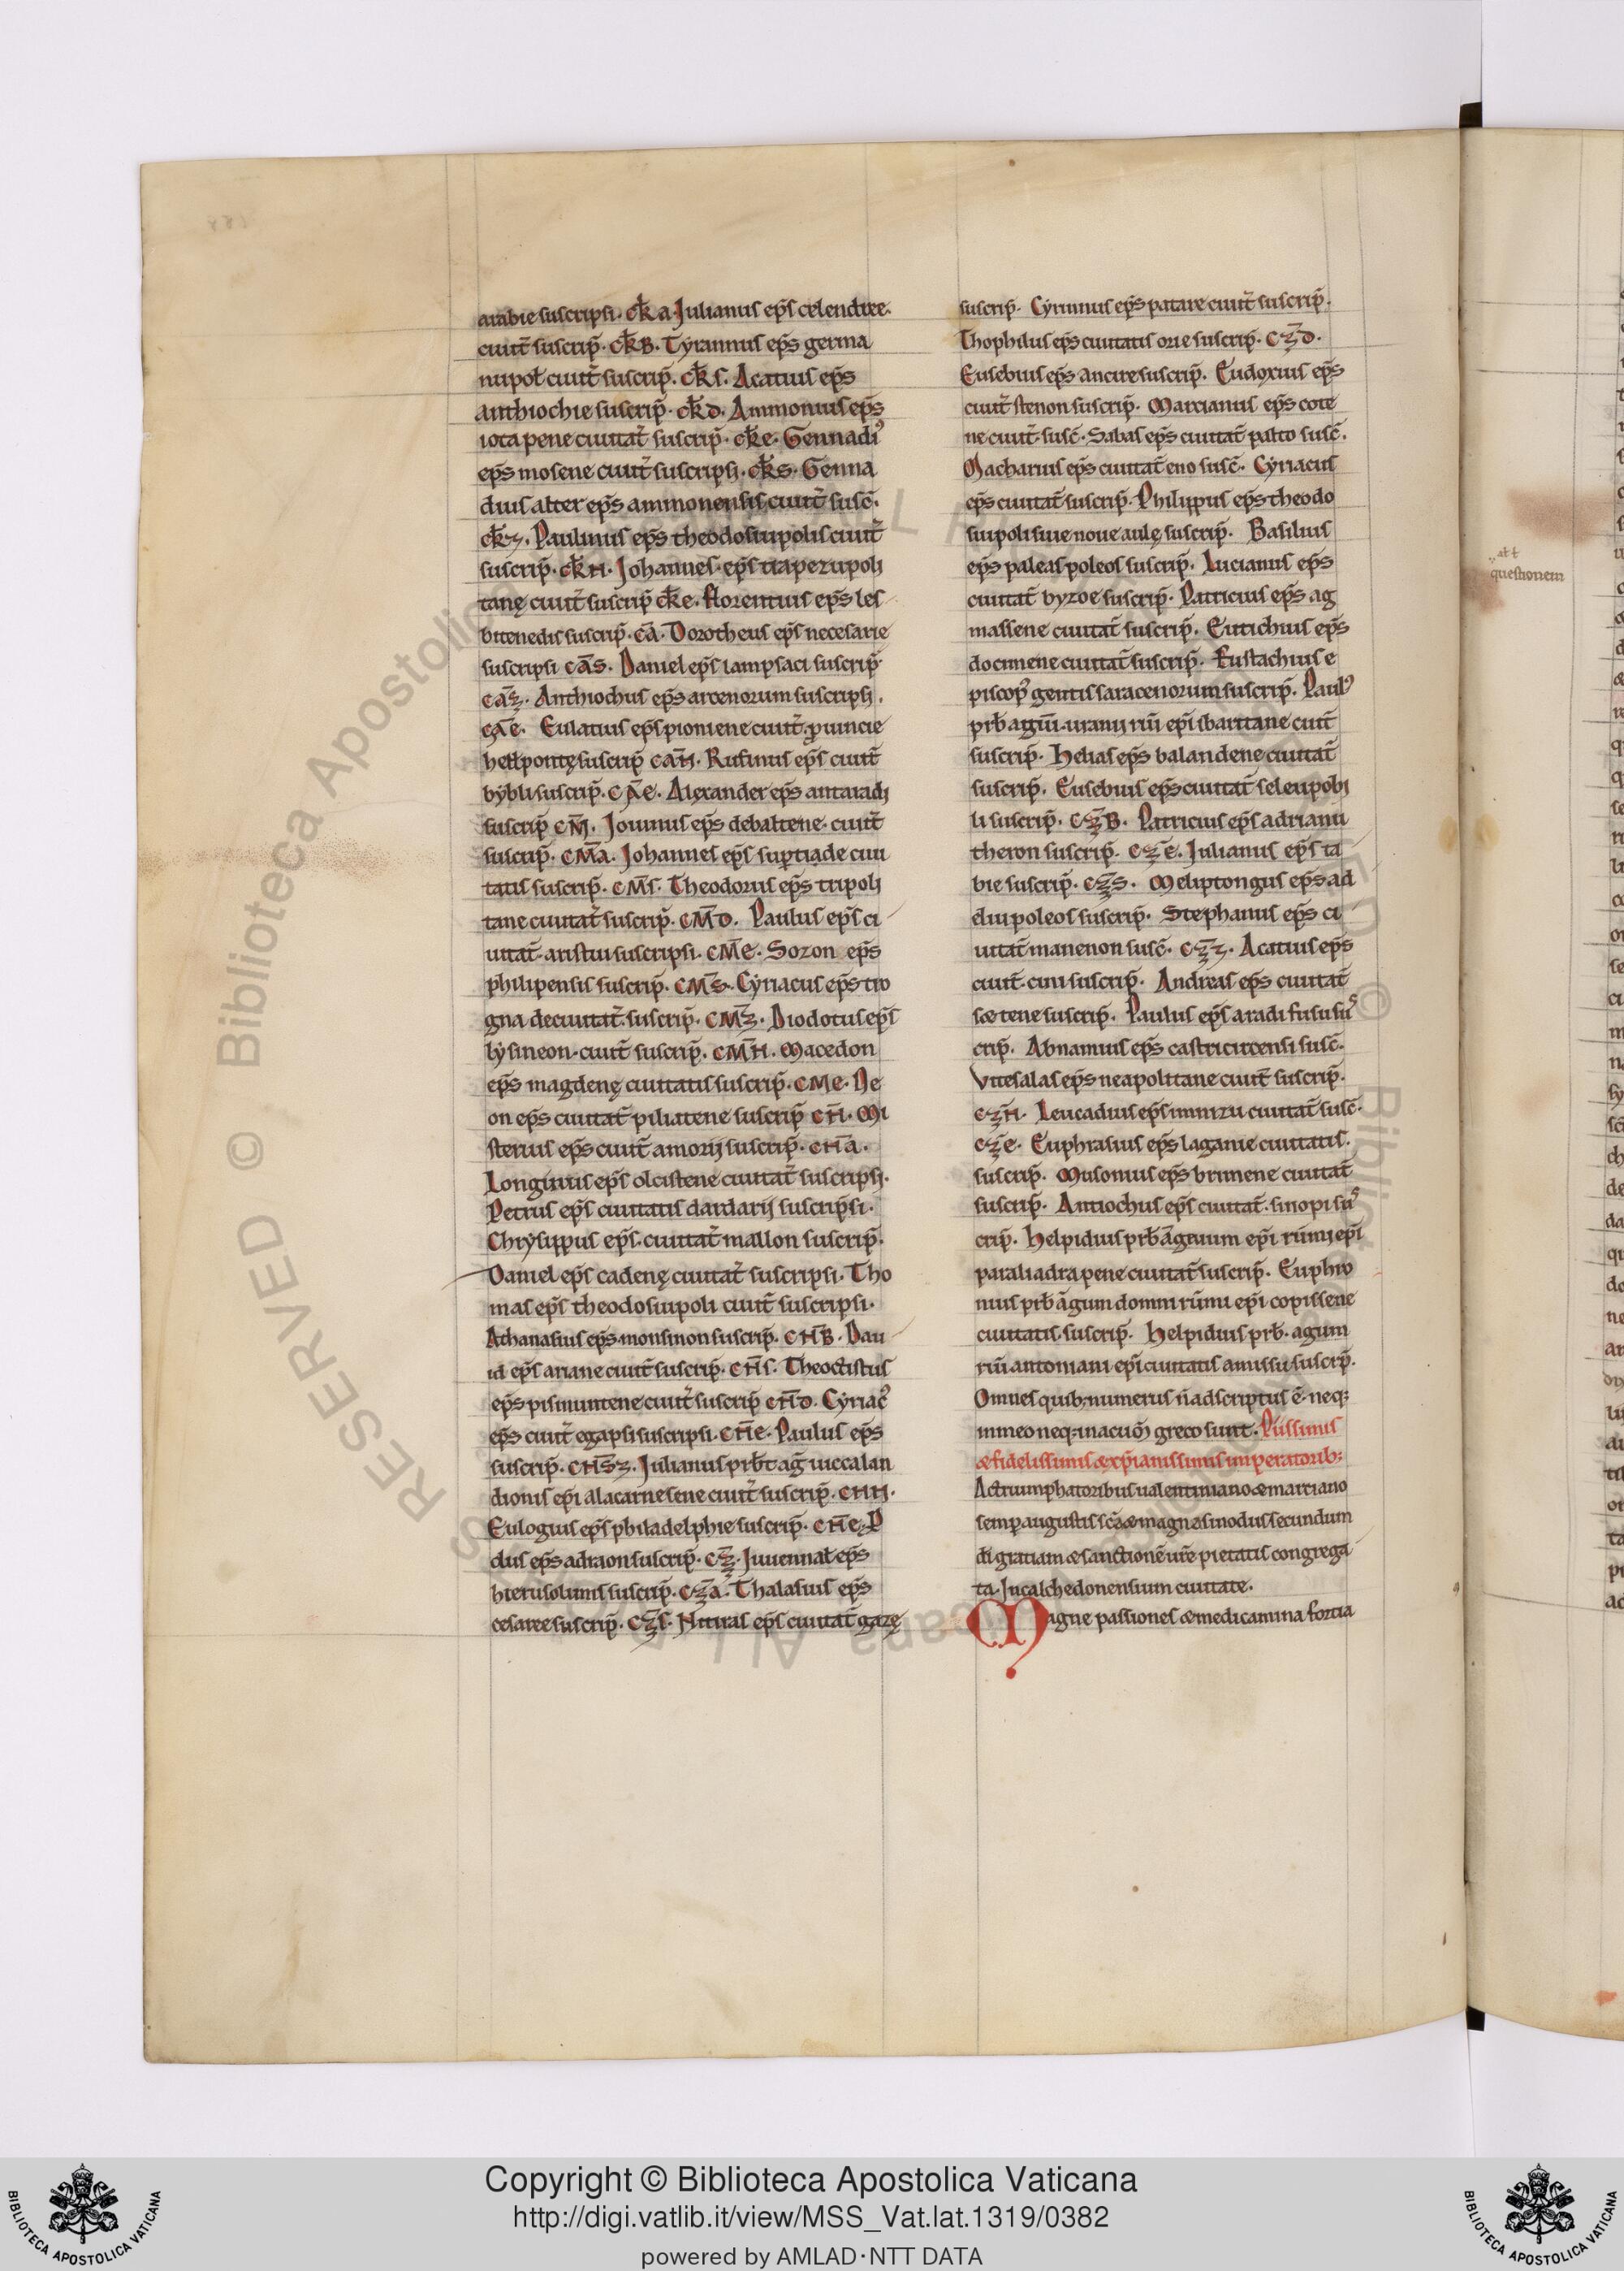 arabie suscripsi. ck̄a. Julianus ep̄s celendree.
ciuit̄ suscrip̄. ck̄B. Tyrannus ep̄s germa
nupoł ciuit̄ suscrip̄. ck̄s. Acatius ep̄s
anthiochie suscrip̄. ck̄d. Ammonius ep̄s
iotapene ciuitat̄ suscrip̄. ck̄e. Gennadiꝰ
ep̄s mosene ciuit̄ suscripsi. ck̄s. Genna
dius alter ep̄s ammonensis ciuit̄ susc̄.
ck̄z. Paulinus ep̄s theodosiupolis ciuit̄
suscrip̄. ck̄н. Johannes. ep̄s trapezupoli
tanę ciuit̄ suscrip̄ ck̄e. florentius ep̄s les
bitenedis suscrip̄. c̄a. Dorotheus ep̄s necesarie
suscripsi cās. Daniel ep̄s lampsaci suscrip̄.
cāz. Anthiochus ep̄s arcenorum suscripsi.
cāe. Eulatius ep̄s pioniene ciuit̄. ꝓuincie
hellpontę suscrip̄ cāн. Rufinus ep̄s ciuit̄
bybli suscrip̄. cāe. Alexander ep̄s antaradi
suscrip̄ cm̄. Jouinus ep̄s debaltene. ciuit̄
suscrip̄. cm̄a. Johannes ep̄s suꝑtiade ciui
tatis suscrip̄. cm̄s. Theodorus ep̄s tripoli
tane ciuitat̄ suscrip̄. cm̄d. Paulus ep̄s ci
uitat̄. aristui suscripsi. cm̄e. Sozon ep̄s
philipensis suscrip̄. cm̄s. Cyriacus ep̄s tro
gna deciuitat̄. suscrip̄. cm̄z. Diodotus ep̄s
lysineon. ciuit̄ suscrip̄. cm̄н. Macedon
ep̄s magdenę ciuitatis suscrip̄. cme. Ne
on ep̄s ciuitat̄ piliatene suscrip̄ cн̄. Mi
sterius ep̄s ciuit̄ amorij suscrip̄. cн̄a.
Longinus ep̄s olcistene ciuitat̄ suscripsi.
Petrus ep̄s ciuitatis dardarij suscripsi.
Chrysippus ep̄s. ciuitat̄ mallon suscrip̄.
Daniel ep̄s cadenę ciuitat̄ suscripsi. Tho
mas ep̄s theodosiupoli ciuit̄ suscripsi.
Athanasius ep̄s. monsinon suscrip̄. cн̄B. Dau
id ep̄s ariane ciuit̄ suscrip̄. cн̄s. Theoctistus
ep̄s pisinuntene ciuit̄ suscrip̄ cн̄d. Cyriacꝰ
ep̄s ciuit̄ egapsi suscripsi. cн̄e. Paulus ep̄s
suscrip̄. cн̄sz. Julianus prb̄t aḡ uiccalan
dionis ep̄i alacarnesene ciuit̄ suscrip̄. cнн.
Eulogius ep̄s philadelphie suscrip̄. cн̄e. P
dus ep̄s adraon suscrip̄. cz̄. Juuenal ep̄s
hierusolimis suscrip̄. cz̄a. Thalasius ep̄s
cesaree suscrip̄. cz̄s. Nituras ep̄s ciuitat̄ gazę
suscrip̄. Cyrinus ep̄s patare ciuit̄ suscrip̄.
Thophilus ep̄s ciuitatis orie suscrip̄. cz̄d.
Eusebius ep̄s ancire suscrip̄. Eudoxius ep̄s
ciuit̄ stenon suscrip̄. Marcianus ep̄s cote
ne ciuit̄. susc̄. Sabas ep̄s ciuitat̄ palto susc̄.
Macharius ep̄s ciuitat̄ eno susc̄. Cyriacus
ep̄s ciuitat̄ suscrip̄. Philippus ep̄s theodo
siupoli siue noue aulę suscrip̄. Basilius
ep̄s paleas poleos suscrip̄. Lucianus ep̄s
ciuitat̄ byzoe suscrip̄. Patricius ep̄s ag
massene ciuitat̄ suscrip̄. Eutichius ep̄s
docimene ciuitat̄ suscrip̄. Eustachius e
piscopꝰ gentis saracenorum suscrip̄. Paulꝰ
prb̄ agiū. uranij riū ep̄i ibarttane ciuit̄
suscrip̄. Helias ep̄s balandene ciuitat̄
suscrip̄. Eusebius ep̄s ciuitat̄ seleupobi
li suscrip̄. cz̄B. Patricius ep̄s adrianu
theron suscrip̄. cz̄e. Julianus ep̄s ta
bie suscrip̄. cz̄s. Meliptongus ep̄s ad
diupoleos suscrip̄. Stephanus ep̄s ci
uitat̄ manenon susc̄. cz̄z. Acatius ep̄s
ciuit̄. cini suscrip̄. Andreas ep̄s ciuitat̄
soetene suscrip̄. Paulus ep̄s aradi fusu sus
crip̄. Abnamius ep̄s castri circensi susc̄.
Vttesalas ep̄s neapolitane ciuit̄ suscrip̄.
cz̄н. Leucadius ep̄s imnizu ciuitat̄ susc̄.
cz̄e. Euphrasius ep̄s laganie ciuitatis.
suscrip̄. Musonius ep̄s brimene ciuitat̄
suscrip̄. Antiochus ep̄s ciuitat̄. sinopi sus
crip̄. Helpidius prb̄ āgtuum ep̄i rūmj ep̄i
paraliadrapene ciuitat̄ suscrip̄. Euphro
nius prb̄ āgum domni rūmi ep̄i copissene
ciuitatis. suscrip̄. Helpidius prb̄. agum
riū antoniani ep̄i ciuitatis amissu suscrip̄.
Omnes quib; numerus n̄ adscriptus ē. neq;
in meo neq; in acuo greco sunt. Piissimis
& fidelissimis & xp̄ianissimis imperatorib:
Actriumphatoribus ualentiniano & martiano
semꝑ augustis sc̄a & magna sinodus secundum
di gratiam & sanctionē ur̄e pietatis congrega
ta. In calchedonensium ciuitate.
Magne passiones & medicamina fortia
questionem
Copyright © Biblioteca Apostolica Vaticana
http://digi.vatlib.it/view/MSS_Vat.lat.1319/0382
powered by AMLAD·NTT DATA